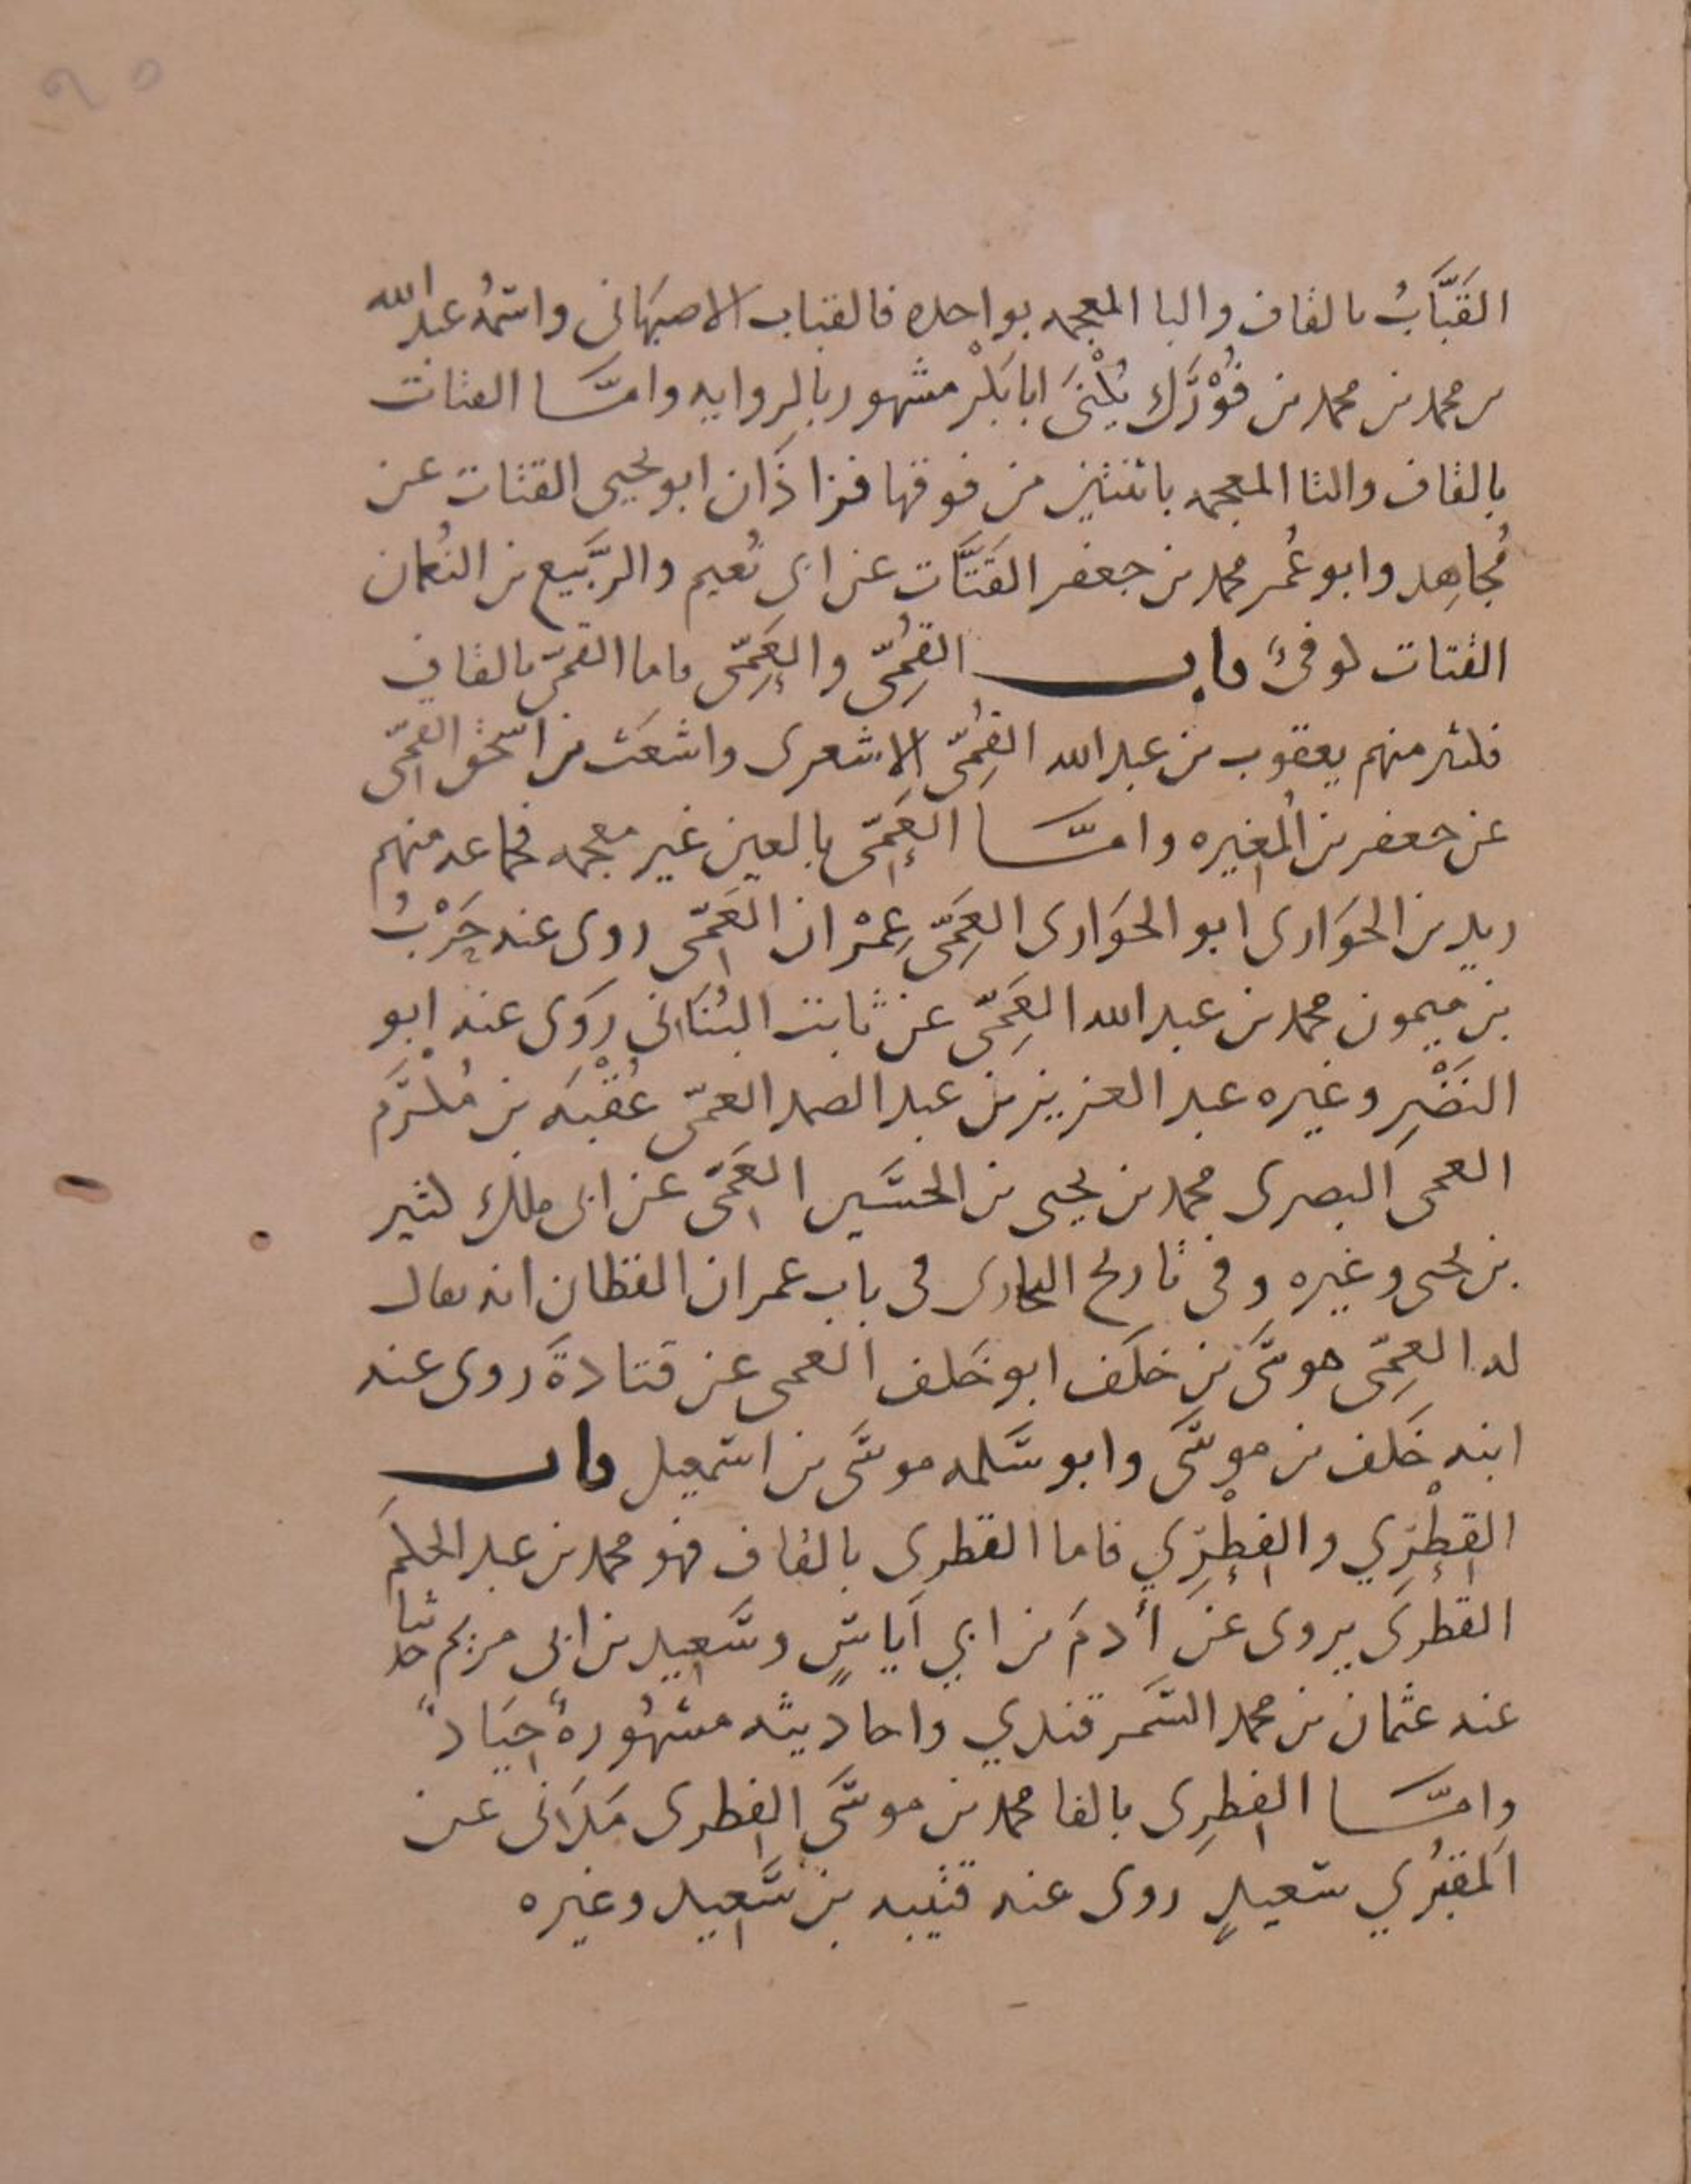 القَبَّابُ بالقاف والبا المعجمه بواحده فالقباب الاصبهانى واسمُه عبد الله
بن محمد بن محمد بن فُوْرَّك يُكْنَى ابا بَكْر مشهور بالروايه وامَّا القتات
بالقاف والتا المعجمه باثنتين من فوقها فزاذَان ابو يحيى القتات عن
مُجاهِد وابو عُمر محمد بن جعفر القَتَّات عن ابى نُعيم والرَّبيع بن النُعمان
القتات كوفىٌ باب القُمِّى والعَمِّى فاما القمّى بالقافِ
فكثير منهم يعقوب بن عبد الله القُمِّى الاشعرى واشعَث بن اسحٰق القمِّى
عن جعفر بن المُغيره وامَّا العَمِّى بالعين غير معجمه فجماعه منهم
زيد بن الحَوَارى ابو الحَوَارى العَمِّى عِمْران العَمِّى روى عنه حَرْبُ
بن ميمون محمد بن عبد الله العَمِّى عن ثابت البُنَانى رَوَى عنه ابو
النَضْرِ وغيره عبد العزيز بن عبد الصمد العمّى عُقْبَه بن مُكْرَم
العمى البصرى محمد بن يحيى بن الحسَين العَمِّى عن ابى ملك كثير
بن يحيى وغيره وفى تاريخ البخارى فى باب عمران القطان انه يقال
له العَمِّى موسَى بن خلَف ابو خَلف العمى عن قتادةَ روى عنه
ابنه خَلف بن موسَى وابو سَلمه موسَى بن اسمعيل باب
القِطْرِي والفِطْرِي فاما القطرى بالقاف فهو محمد بن عبد الحكَم
القطرِى يروى عن أدمَ بن ابي اَياسٍ وسَعِيد بن ابى مريم حدثنا
عنه عثمان بن محمد السَمرقندي واحاديثه مشهُورةٌ جِيَادٌ
وامَّا الفِطرِى بالفا محمد بن موسَى الفِطرى مَدَنى عن
المَقبُرِي سَعيدٍ روى عنه قتيبه بن سَعِيد وغيره